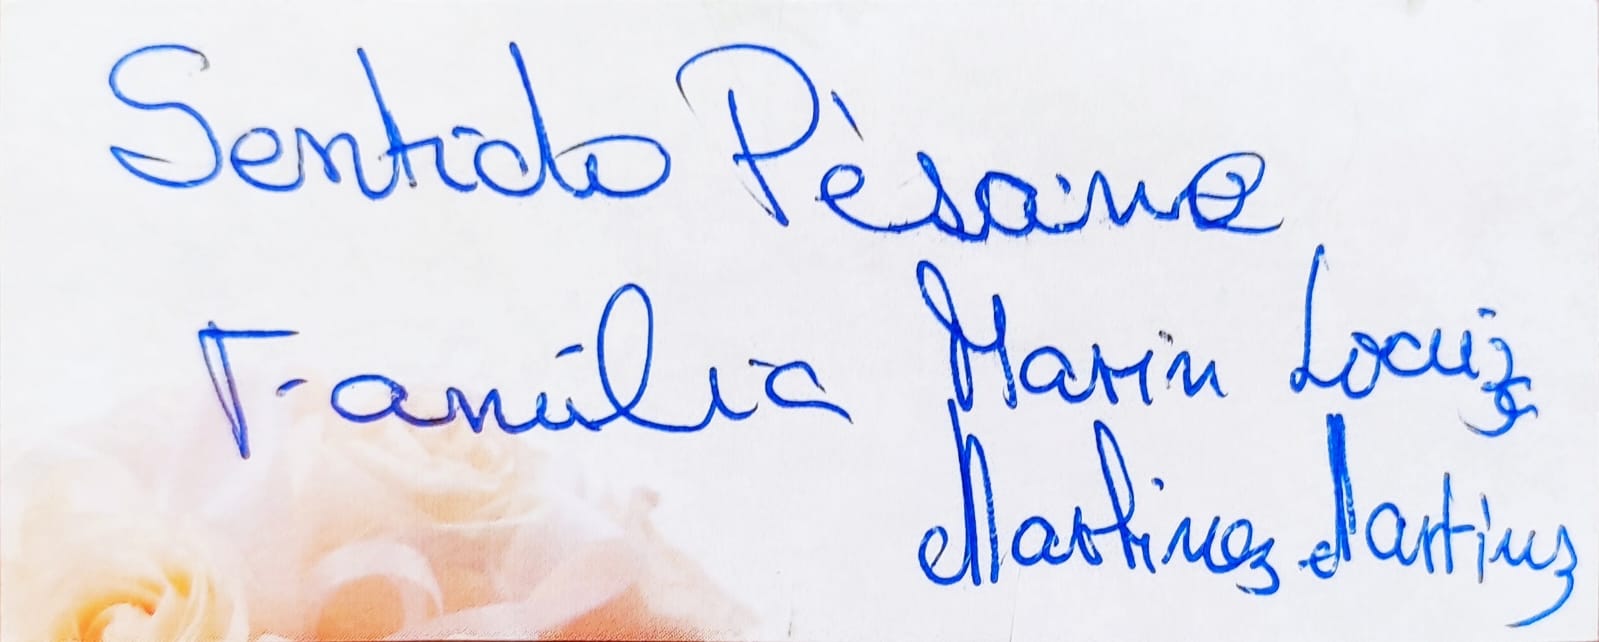 Sentido Pèsame
Família Marin Locuiz
Martinez Martins